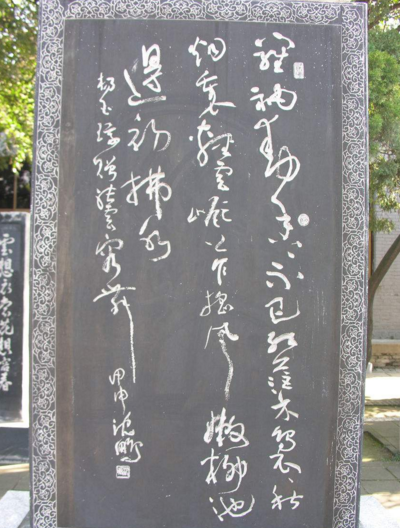 羅袖動香香不已紅蕖裊裊秋
煙裏輕雲嶺上乍搖風嫩柳池
邊初拂水
楊玉環贈張雲容舞 甲申沈鵬
雲想衣裳花想容春